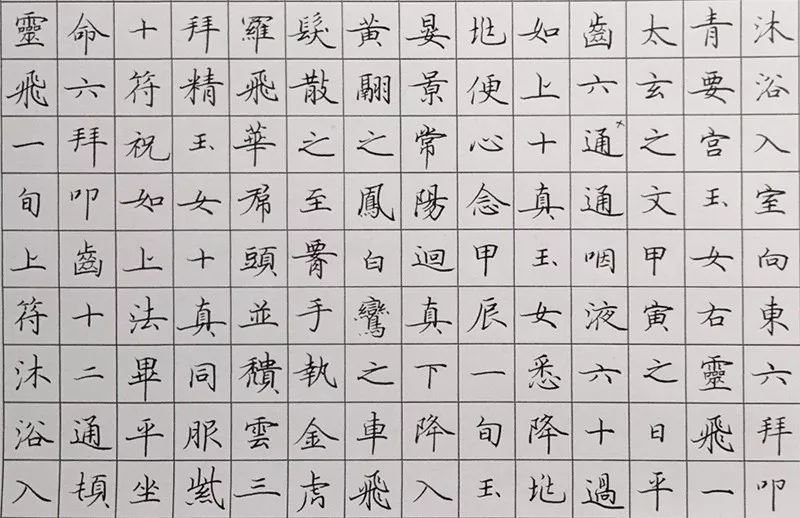 沐浴入室向東六拜叩
青要宫玉女右靈飛一
太玄之文甲寅之日平
齒六通通咽液六十過
如上十真玉女悉降㘴
㘴便心念甲辰一旬玉
晏景常陽迴真下降入
黃翮之鳳白鸞之車飛
髮散之至手執金虎
羅飛華帬頭並穨雲三
拜精玉女十真同服紫
十符祝如上法畢平坐
命六拜叩齒十二通頓
靈飛一旬上符沐浴入